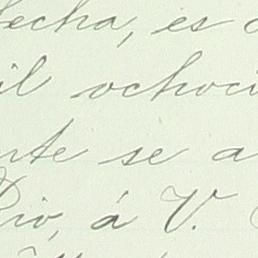 fecha, es
il ochoci
nte se a
Rio, á V.